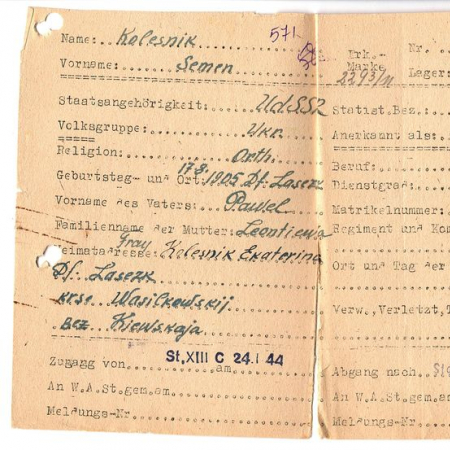 571
Name: Kolesnik
Erk.- Nr.
Vorname: Semen
Marke 2293/11 Lager:
Staatsangehörigkeit: UdSSR Statist.Bez.:
Volksgruppe: Ukr. Anerkannt als:
Religion: Orth. Beruf:
Geburtstag- und Ort: 17.8. 1905 Df. Lasezk Dienstgrad:
Vorname des Vaters: Pawel Matrikelnummer:
Familienname der Mutter: Leontiewa Regiment und Kom
Heimatadresse: Frau Kolesnik Ekaterina
Df. Lasezk Ort und Tag der
Krs. Wasilkowskij
Bez. Kiewskaja Verw., Verletzt, T
Zugagg von St.XIII C am 24.I 44 Abgang nach
An W.A.St.gem.am An W.A.St.gem.am
Meldungs-Nr Meldungs-Nr.